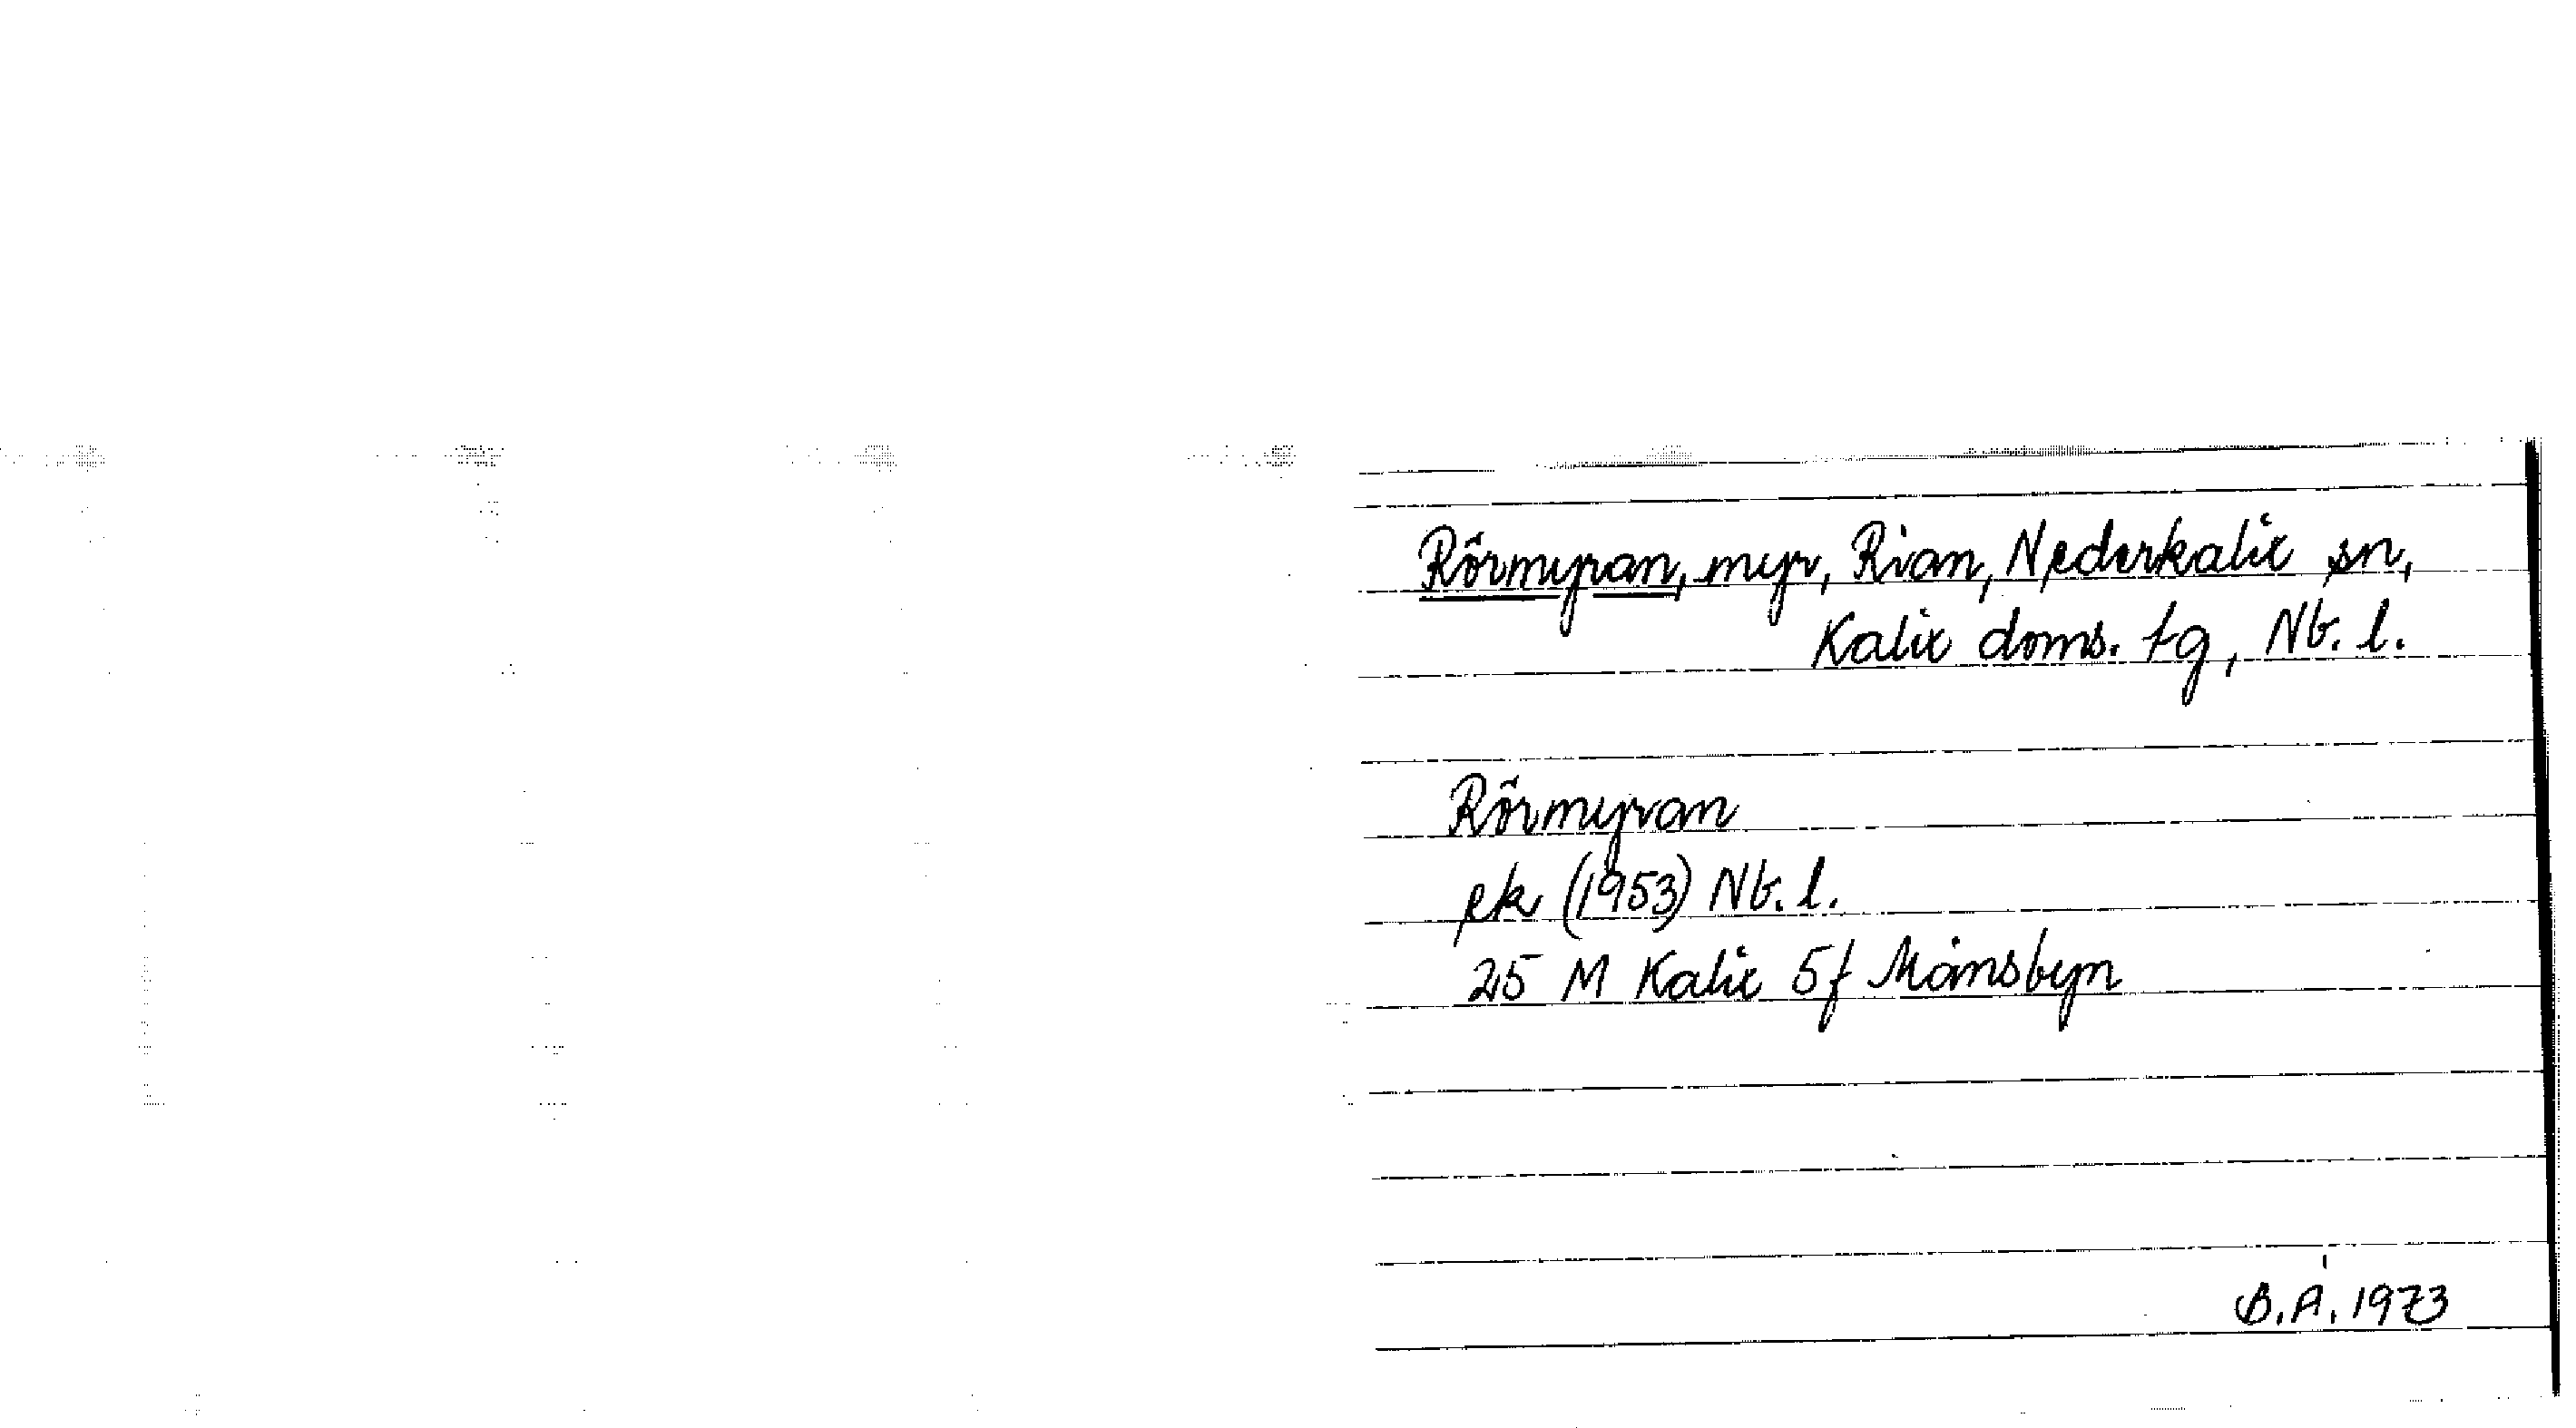 Rörmyran, myr, Rian, Nederkalix sn,
Kalix doms. tg, Nb. l.
Rörmyran
ek (1953) Nb. l.
25 M Kalix 5f Månsbyn
B. Å. 1973